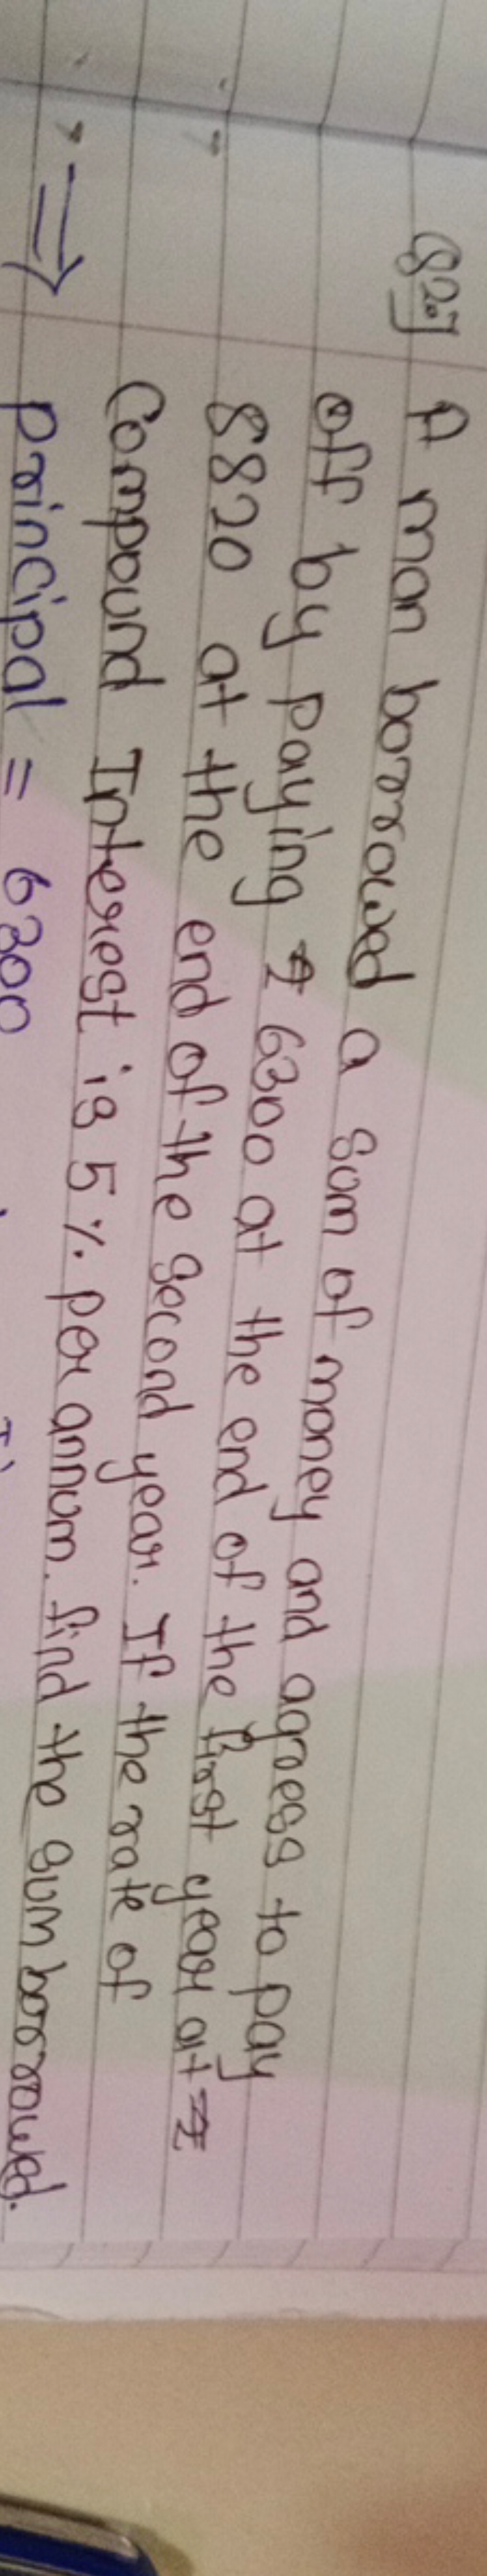 Q2.] A man borrowed a sum of money and agress to pay
off by paying ₹ 6300 at the end of the first year at ₹
8820 at the end of the second year. If the rate of
Compound Interest is 5 %. per annum. find the sum borrowed.
⇒ principal = 6300